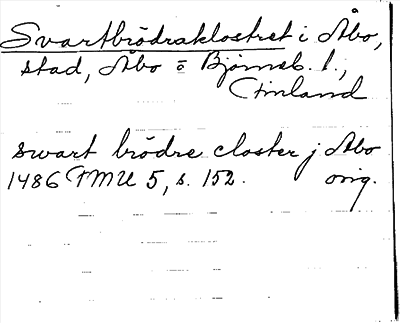 Svartbrödraklostret i Åbo,
stad, Åbo o Björneb. l.,
Finland
swart brödre closter j Åbo
1486 FMU 5, s. 152. orig.